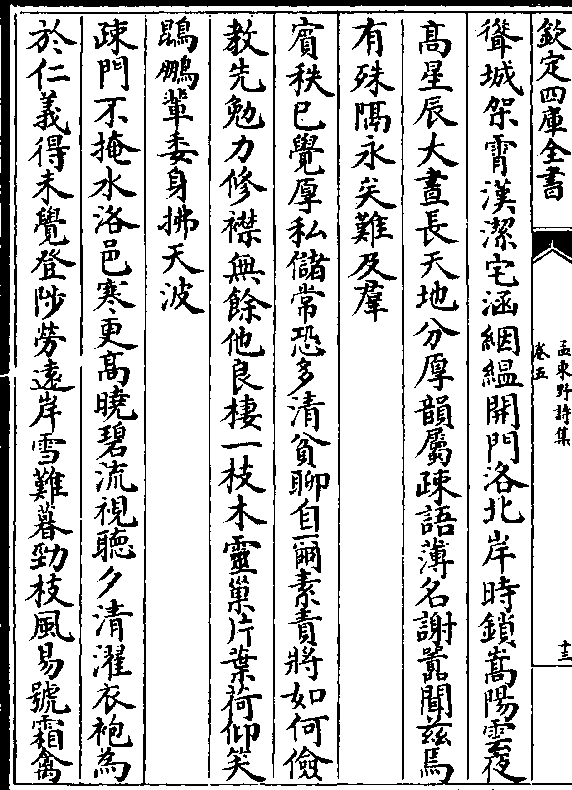 欽定四庫全書
孟東野詩集
卷五
十三
聳城架霄漢潔宅涵絪緼開門洛北岸時鎖嵩陽雲夜
高星辰大晝長天地分厚韻屬疎語薄名謝囂聞兹焉
有殊隅永矣難及羣
賓秩已覺厚私儲常恐多清貧聊自爾素責將如何儉
教先勉力修襟無餘他良棲一枝木靈巢片葉荷仰笑
鵾鵬輩委身拂天波
疎門不掩水洛邑寒更高曉碧流視聽夕清濯衣袍為
於仁義得未覺登陟勞遠岸雪難暮勁枝風易號霜禽